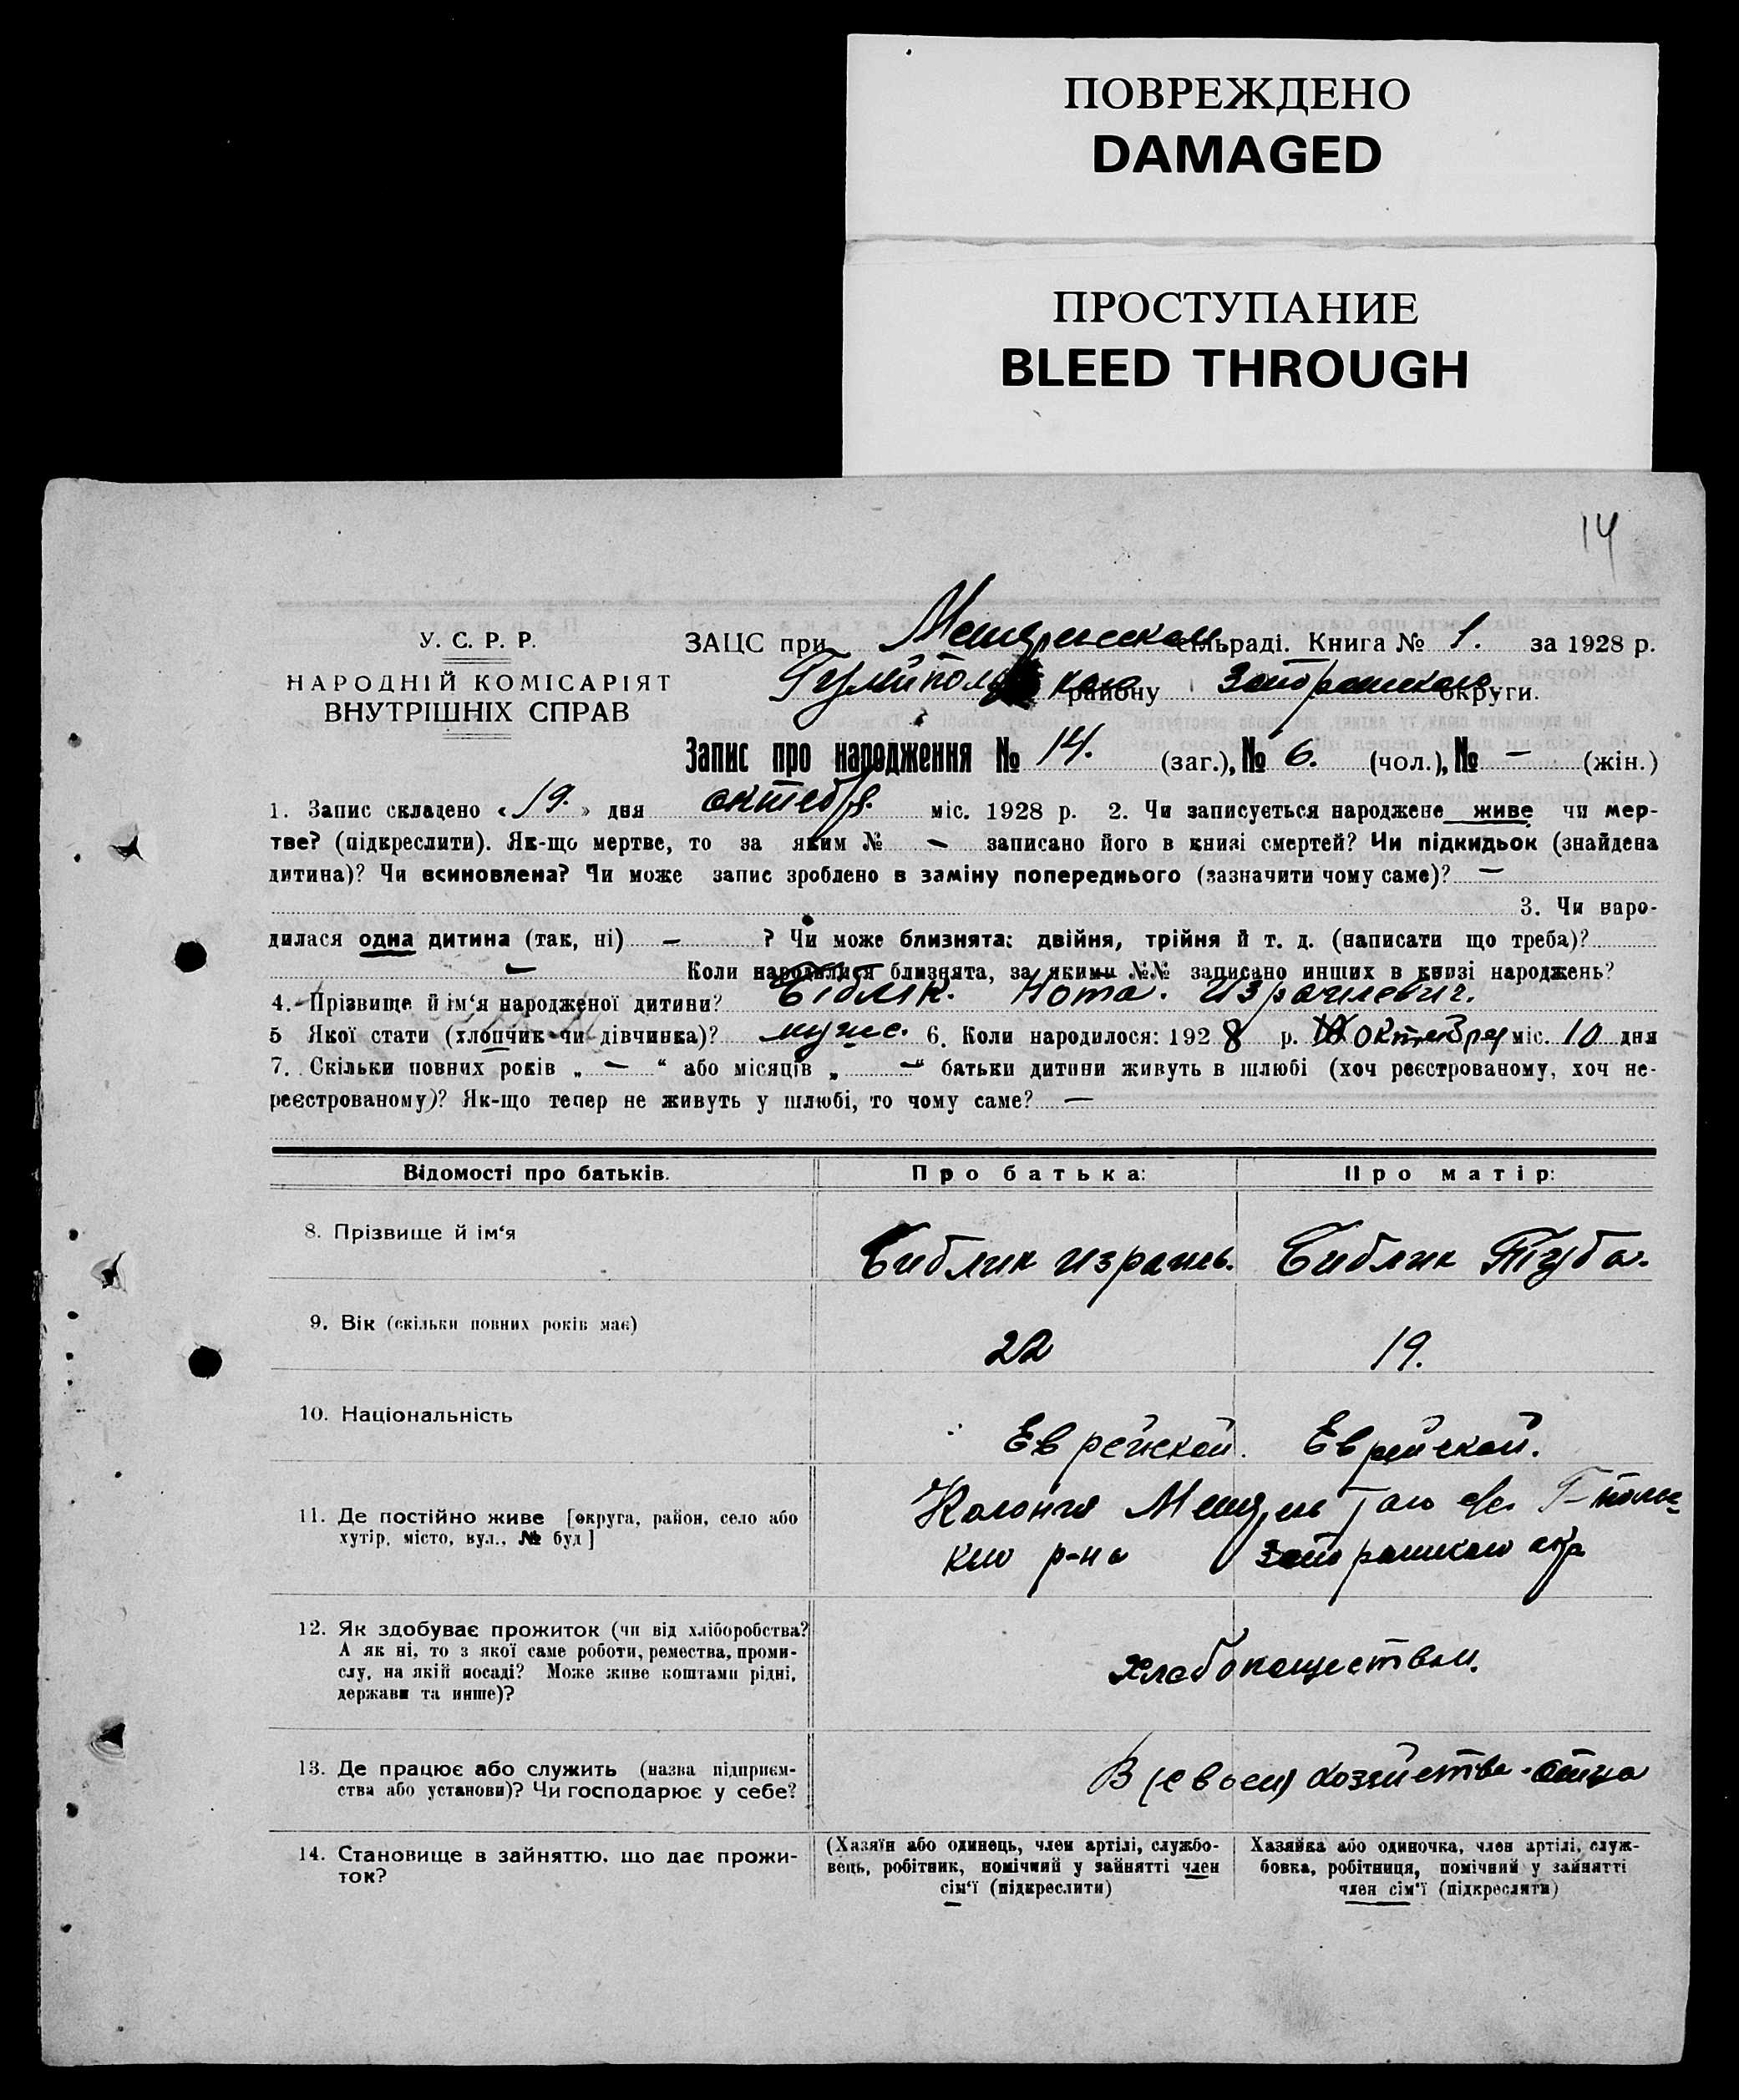 ПОВРЕЖДЕНО
DAMAGED
ПРОСТУПАНИЕ
BLEED THROUGH
14
У. С. Р. Р.
НАРОДНІЙ КОМІСАРІЯТ
ВНУТРІШНІХ СПРАВ
ЗАЦС при сільраді. Книга № 1. за 1928 р.
району округи.
Запис про народження № 14. (заг.), № 6. (чол.), № — (жін.)
1. Запис складено « 19. » дня октября міс. 1928 р. 2. Чи записується народжене живе чи мер-
тве? (підкреслити). Як-що мертве, то за яким № — записано його в книзі смертей? Чи підкидьок (знайдена
дитина)? Чи всиновлена? Чи може запис зроблено в заміну попереднього (зазначити чому саме)? —
3. Чи наро-
дилася одна дитина (так, ні) — ? Чи може близнята: двійня, трійня й т. д. (написати що треба)?
— Коли народилися близнята, за якими №№ записано инших в книзі народжень?
4. Прізвище й ім‘я народженої дитини? Біблік. Нота. Израилевич.
5 Якої стати (хлопчик чи дівчинка)? муже. 6. Коли народилося: 1928 р. октября міс. 10 дня
7. Скільки повних років „ — “ або місяців „ — “ батьки дитини живуть в шлюбі (хоч реєстрованому, хоч не-
реєстрованому)? Як-що тепер не живуть у шлюбі, то чому саме? —
Відомості про батьків. Про батька: Про матір:
8. Прізвище й ім‘я Библик Израиль. Библик Туба.
9. Вік (скільки повних років має) 22 19.
10. Національність Еврейской. Еврейской.
11. Де постійно живе [округа, район, село або
хутір, місто, вул., № буд]
Колония
р-на
12. Як здобуває прожиток (чи від хліборобства?
А як ні, то з якої саме роботи, ремества, проми-
слу, на якій посаді? Може живе коштами рідні,
держави та инше)?
хлебопашеством.
13. Де працює або служить (назва підприєм-
ства або установи)? Чи господарює у себе?
В (своем) хозяйстве отца
14. Становище в зайняттю, що дає прожи-
ток?
(Хазяїн або одинець, член артілі, службо-
вець, робітник, помічний у зайнятті член
сім‘ї (підкреслити)
Хазяйка або одиночка, член артілі, служ-
бовка, робітниця, помічний у зайнятті
член сім‘ї (підкреслити)